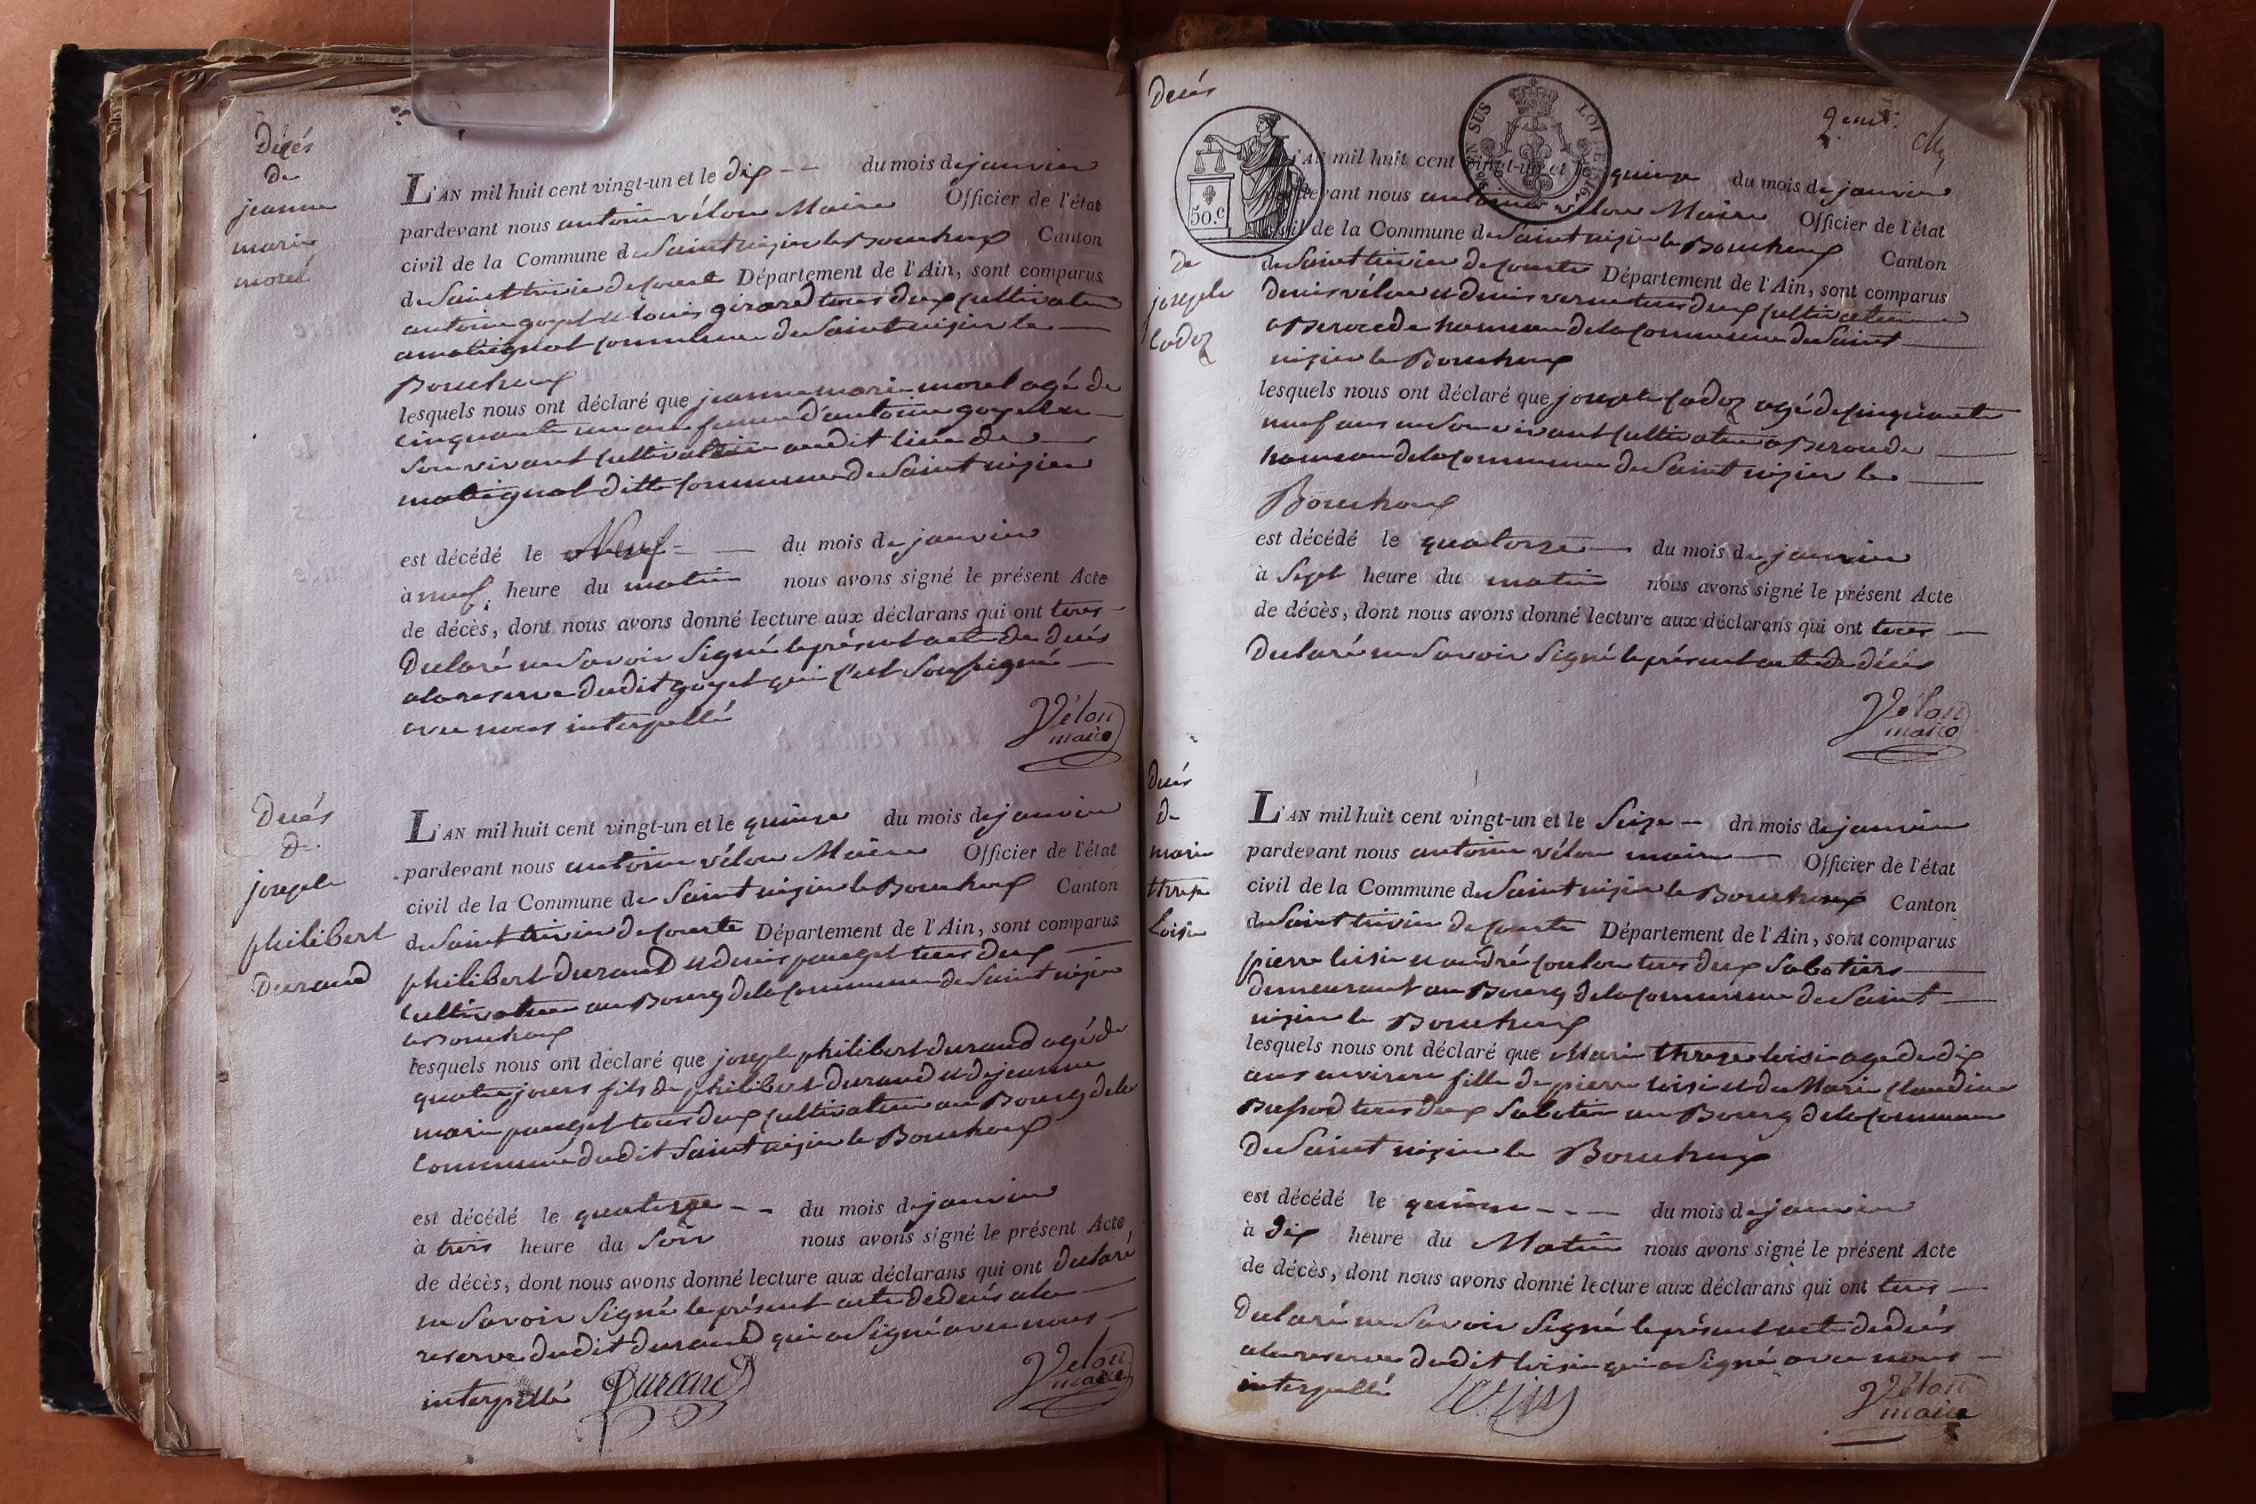 Décés
de
jeanne
marie
morel
L'AN mil huit cent vingt-un et le dix -- du mois de janvier
pardevant nous antoine vélon Maire Officier de l'état
civil de la Commune de Saint nizier le Bouchoux Canton
de Saint trivier de Courte Département de l'Ain, sont comparus
antoine goyet et louis girard tous deux cultivateur
a matignat commune de Saint nizier le
Bouchoux
lesquels nous ont déclaré que jeanne marie morel agé de
cinquante un ans femme d'antoine goyet en
son vivant cultivatrice audit lieu de
matignat ditte commune de Saint nizier
est décédé le Neuf - — du mois de janvier
à neuf heure du matin nous avons signé le présent Acte
de décès, dont nous avons donné lecture aux déclarans qui ont tous
declaré ne savoir signé le présent acte de decés
a la reserve dudit goyet qui c'est soussigné
avec nous interpellé
Vélon
maire
Decés
de
joseph
philibert
Durand
L'AN mil huit cent vingt-un et le quinze du mois de janvier
pardevant nous antoine vélon Maire Officier de l'état
civil de la Commune de Saint nizier le Bouchoux Canton
de Saint trivier de Courte Département de l'Ain, sont comparus
philibert durand et denis pauget tous deux
cultivateur au Bourg de la commune de Saint nizier
le Bouchoux
lesquels nous ont déclaré que joseph philibert durand agé de
quatre jours fils de philibert durand et de jeanne
marie pauget tous deux cultivateur au Bourg de la
commune dudit Saint nizier le Bouchoux
est décédé le quatorze - - du mois de janvier
à trois heure du soir nous avons signé le présent Acte
de décès, dont nous avons donné lecture aux déclarans qui ont declaré
ne savoir signé le présent acte de decés a la
reserve dudit durand qui a signé avec nous
interpellé Durand
Velon
maire
Decés
de
joseph
Cadoz
50.c
SUS LOI DE 1816
2 emt.
L'AN mil huit cent vingt-un et le quinze du mois de janvier
pardevant nous antoine vélon Maire Officier de l'état
civil de la Commune de Saint nizier le Bouchoux Canton
de Saint trivier de Courte Département de l'Ain, sont comparus
denis vélon et denis verne tous deux cultivateur
a Beroude hameau de la commune de Saint
nizier le Bouchoux
lesquels nous ont déclaré que joseph Cadoz agé de cinquante
neuf ans en son vivant cultivateur a Beroude
hameau de la commune de Saint nizier le
Bouchoux
est décédé le quatorze — du mois de janvier
à Sept heure du matin nous avons signé le présent Acte
de décès, dont nous avons donné lecture aux déclarans qui ont tous
declaré ne savoir signé le présent acte de décés
Vélon
maire
Decés
de
marie
threse
loisie
L'AN mil huit cent vingt-un et le Seize - dn mois de janvier
pardevant nous antoine vélon maire — Officier de l'état
civil de la Commune de Saint nizier le Bouchoux Canton
de Saint trivier de Courte Département de l'Ain, sont comparus
pierre loisie et andré coulon tous deux sabotiers
demeurant au Bourg de la commune de Saint
nizier le Bouchoux
lesquels nous ont déclaré que Marie threse loisie age de dix
ans environ fille de pierre loisie et de Marie Claudine
Bussod tous deux sabotier au Bourg de la commune
de Saint nizier le Bouchoux
est décédé le quinze - - — du mois de janvier
à Dix heure du Matin nous avons signé le présent Acte
de décès, dont nous avons donné lecture aux déclarans qui ont tous
declaré ne savoir signé le présent acte de decés
a la reserve dudit loisie qui a signé avec nous
interpellé
Vélon
maire